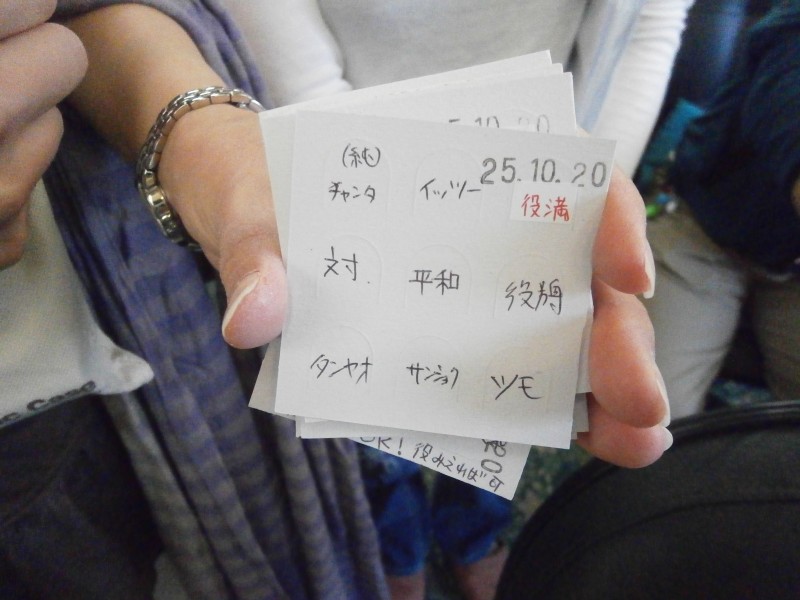 5.10.20
25.10.20
(純)
チャンタ
イッツー
役満
対
平和
役牌
タンヤオ
サンショク
ツモ
OK! 役みえれば可